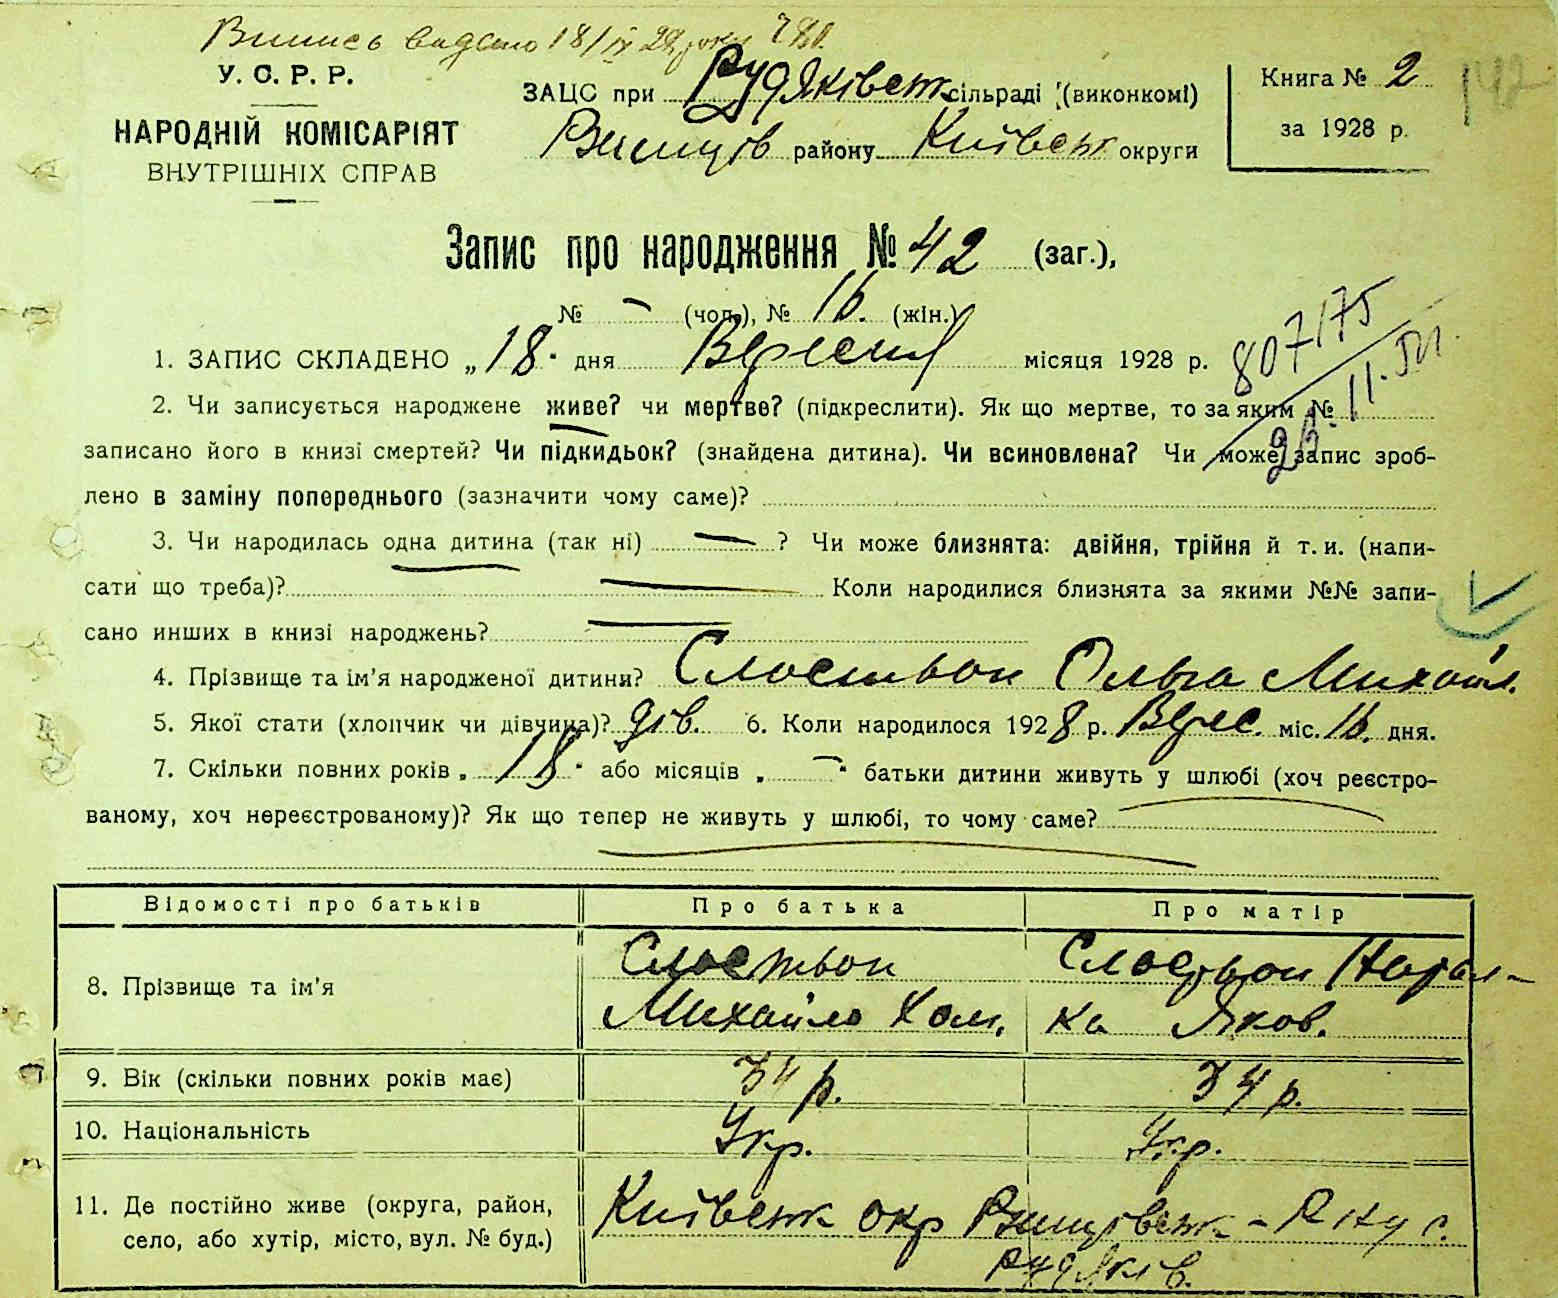 Випись видано 18/IX 29 року
У. С. Р. Р.
НАРОДНІЙ КОМІСАРІЯТ
ВНУТРІШНІХ СПРАВ
ЗАЦС при Рудяківськ сільраді (виконкомі)
Ринщів району Київськ округи
Книга № 2
за 1928 р.
142
Запис про народження № 42 (заг.),
№ – (чол.), № 16. (жін.)
807/75
11.
1. ЗАПИС СКЛАДЕНО „18" дня Вересня місяця 1928 р.
2. Чи записується народжене живе? чи мертве? (підкреслити). Як що мертве, то за яким №
записано його в книзі смертей? Чи підкидьок? (знайдена дитина). Чи всиновлена? Чи може запис зроб-
лено в заміну попереднього (зазначити чому саме)?
3. Чи народилась одна дитина (так ні) — ? Чи може близнята: двійня, трійня й т. и. (напи-
сати що треба)? — Коли народилися близнята за якими №№ запи-
сано инших в книзі народжень? —
4. Прізвище та ім'я народженої дитини? Сластьон Ольга Михайл.
5. Якої стати (хлопчик чи дівчина)? дів. 6. Коли народилося 1928 р. Верес. міс. 16. дня.
7. Скільки повних років „18" або місяців „–" батьки дитини живуть у шлюбі (хоч реєстро-
ваному, хоч нереєстрованому)? Як що тепер не живуть у шлюбі, то чому саме?
Відомості про батьків Про батька Про матір
8. Прізвище та ім'я Сластьон Михайло Хом. Сластьон Натал-
ка Яков.
9. Вік (скільки повних років має) 34 р. 34 р.
10. Національність Укр. Укр.
11. Де постійно живе (округа, район,
село, або хутір, місто, вул. № буд.)
Київськ окр Ринщівськ - Р ну с.
Рудяків.